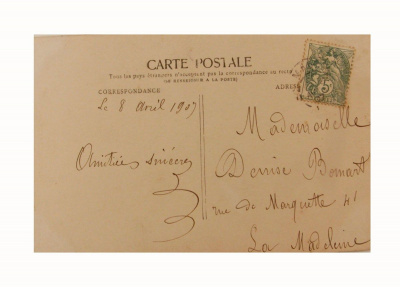 CARTE POSTALE
Tous les pays étrangers n'acceptent pas la correspondance au recto
(SE RENSEIGNER A LA POSTE)
CORRESPONDANCE
ADRES
Le 8 Avril 1907
Amitiés sincères
5
Mademoiselle
Denise Bomart
rue de Marquette 41
La Madeleine